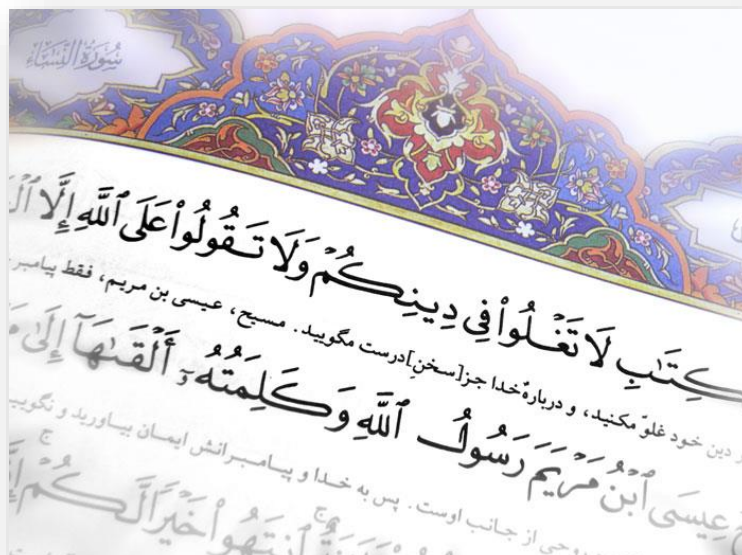 سُورَةُ النِّسَاء
كِتَٰبِ لَا تَغْلُوا۟ فِى دِينِكُمْ وَلَا تَقُولُوا۟ عَلَى ٱللَّهِ إِلَّا
دین خود غلوّ مکنید، و دربارهٔ خدا جز [سخنِ] درست مگویید. مسیح، عیسی بن مریم، فقط پیامبر
عِيسَى ٱبْنُ مَرْيَمَ رَسُولُ ٱللَّهِ وَكَلِمَتُهُۥٓ أَلْقَىٰهَآ إِلَىٰ
روحی از جانب اوست. پس به خدا و پیامبرانش ایمان بیاورید و نگویید
ٱنتَهُوا۟ خَيْرًا لَّكُمْ